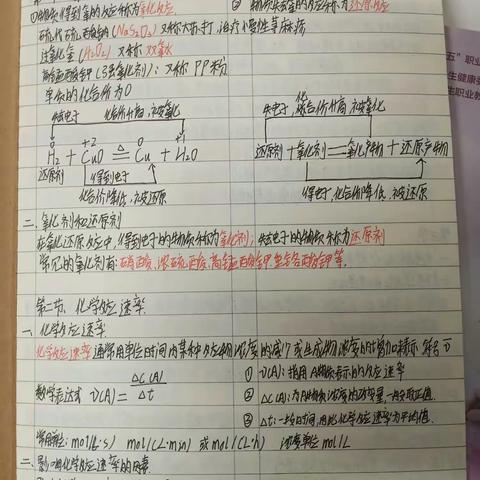 ①物质得到氧的反应称为氧化反应 ② 物质失去氧的反应称为还原反应
硫代硫酸钠(Na2S2O3)又称大苏打,治疗慢性荨麻疹
过氧化氢(H2O2)又称双氧水
高锰酸钾(强氧化剂):又称PP粉
单质的化合价为0
失电子 化合价升高,被氧化
失电子,化合价升高,被氧化
0 +2 0 +1
H2 + CuO △ Cu + H2O
还原剂 + 氧化剂 = 氧化产物 + 还原产物
还原剂 得到电子
得电子,化合价降低,被还原
化合价降低,被还原
二、氧化剂和还原剂
在氧化还原反应中,得到电子的物质称为氧化剂,失去电子的物质称为还原剂
常见的氧化剂有:硝酸、浓硫酸、高锰酸钾、重铬酸钾等.
第二节、化学反应速率
一、化学反应速率
化学反应速率 通常用单位时间内某种反应物浓度的减少或生成物浓度的增加来表示,符号υ
数学表达式 υ(A) = ΔC(A) / Δt
① υ(A):指用A物质表示的反应速率
② ΔC(A):为A物质浓度的改变量,一般取正值.
③ Δt:一段时间,因此化学反应速率为平均值.
常用单位:mol/(L·s) mol/(L·min) 或 mol/(L·h) 浓度单位 mol/L
二、影响化学反应速率的因素
五”职业
生健康
生职业教